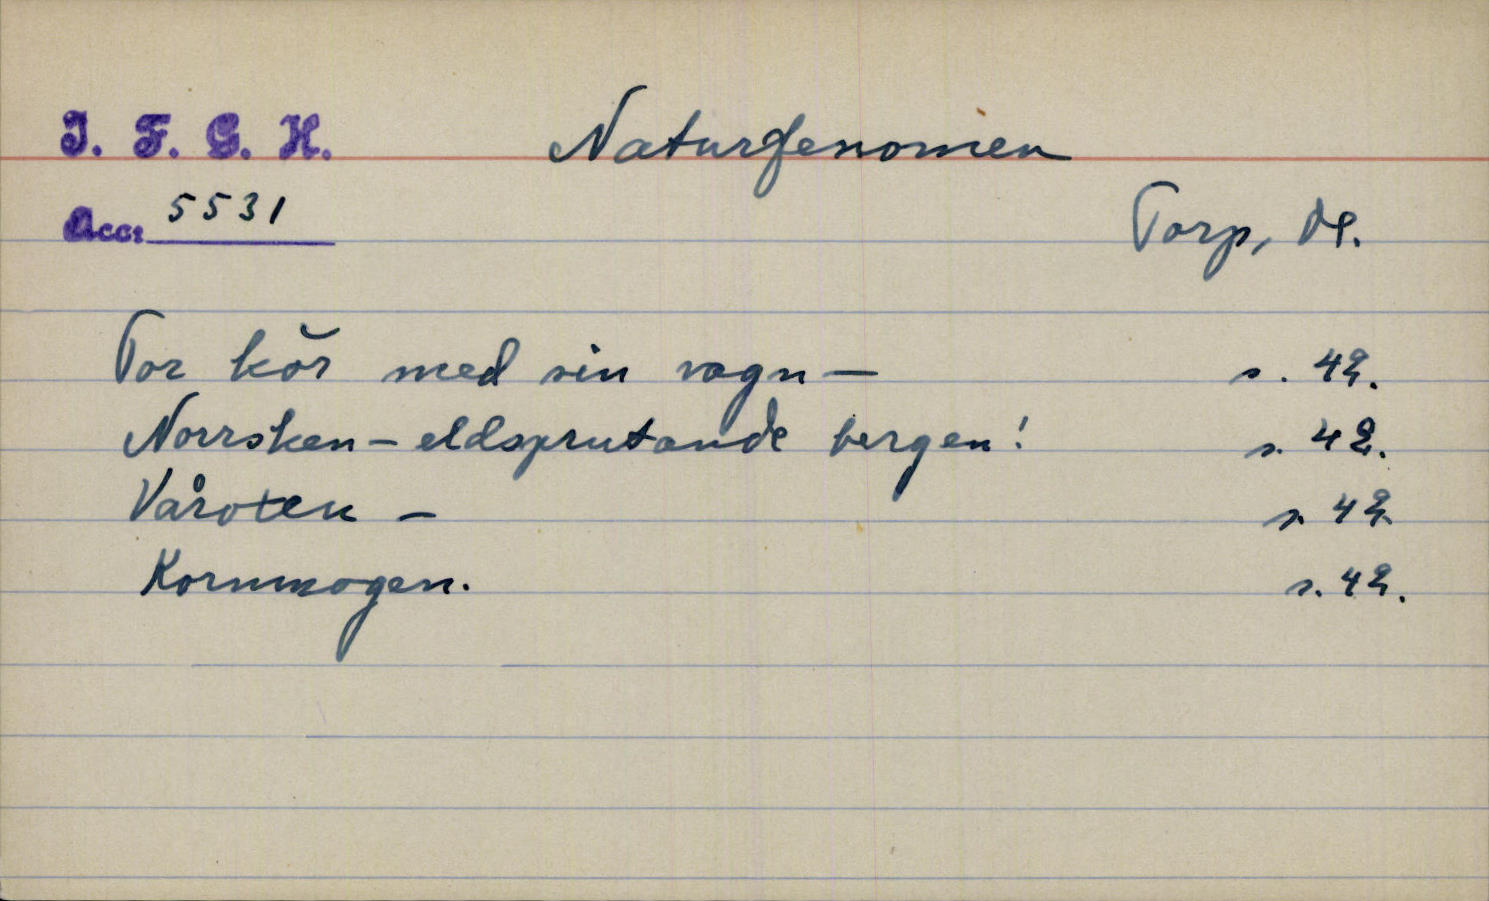 I. F. G. H.
Naturfenomen
Acc: 5531
Torp, Dl.
Tor kör med sin vagn — s. 42.
Norrsken – eldsprutande bergen! s. 42.
Våroten – s. 42.
Kornmogen. s. 42.